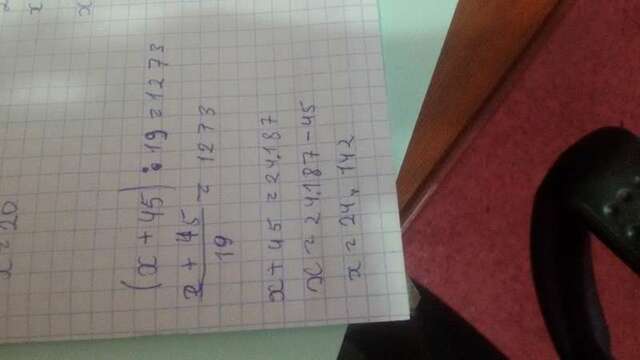 x = 20
(x + 45) : 19 = 1273
x + 45 / 19 = 1273
x + 45 = 24.187
x = 24.187 - 45
x = 24,142